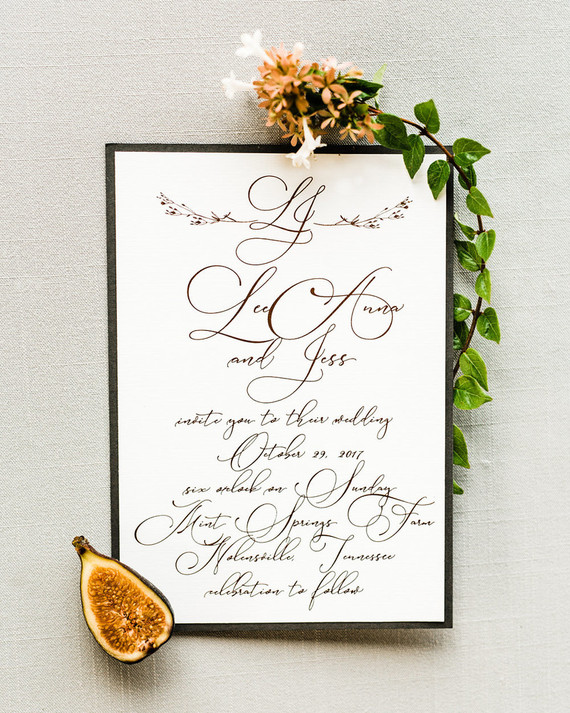 LJ
LeeAnna
and Jess
invite you to their wedding
October 29, 2017
six oclock on Sunday
Mint Springs Farm
Nolensville, Tennessee
celebration to follow